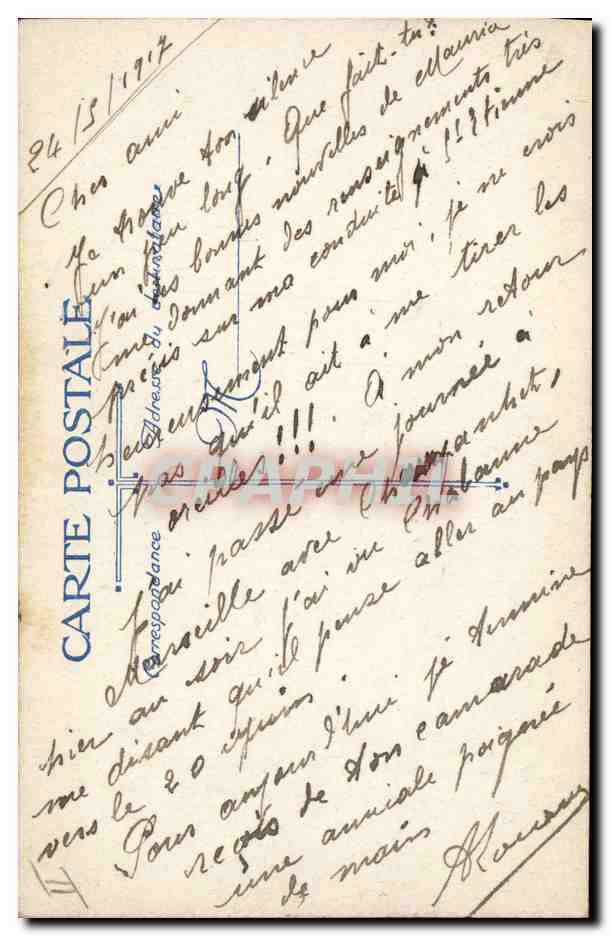 24/5/1917
Cher ami
Je trouve ton silence
un peu long. Que fait-tu?
J'ai des bonnes nouvelles de Mauria
me donnant des renseignements très
précis sur ma conduite à St Etienne
heureusement pour moi, je ne crois
pas qu'il ait à me tirer les
oreilles!!! A mon retour
j'ai passé une journée à
Marseille avec
hier au soir j'ai vu Chabanne
me disant qu'il pense aller au pays
vers le 20 Juin.
Pour aujourd'hui je termine
reçois de ton camarade
une amicale poignée
de mains
II
CARTE POSTALE
Correspondance
Adresse du destinataire
M
CPAPHIL